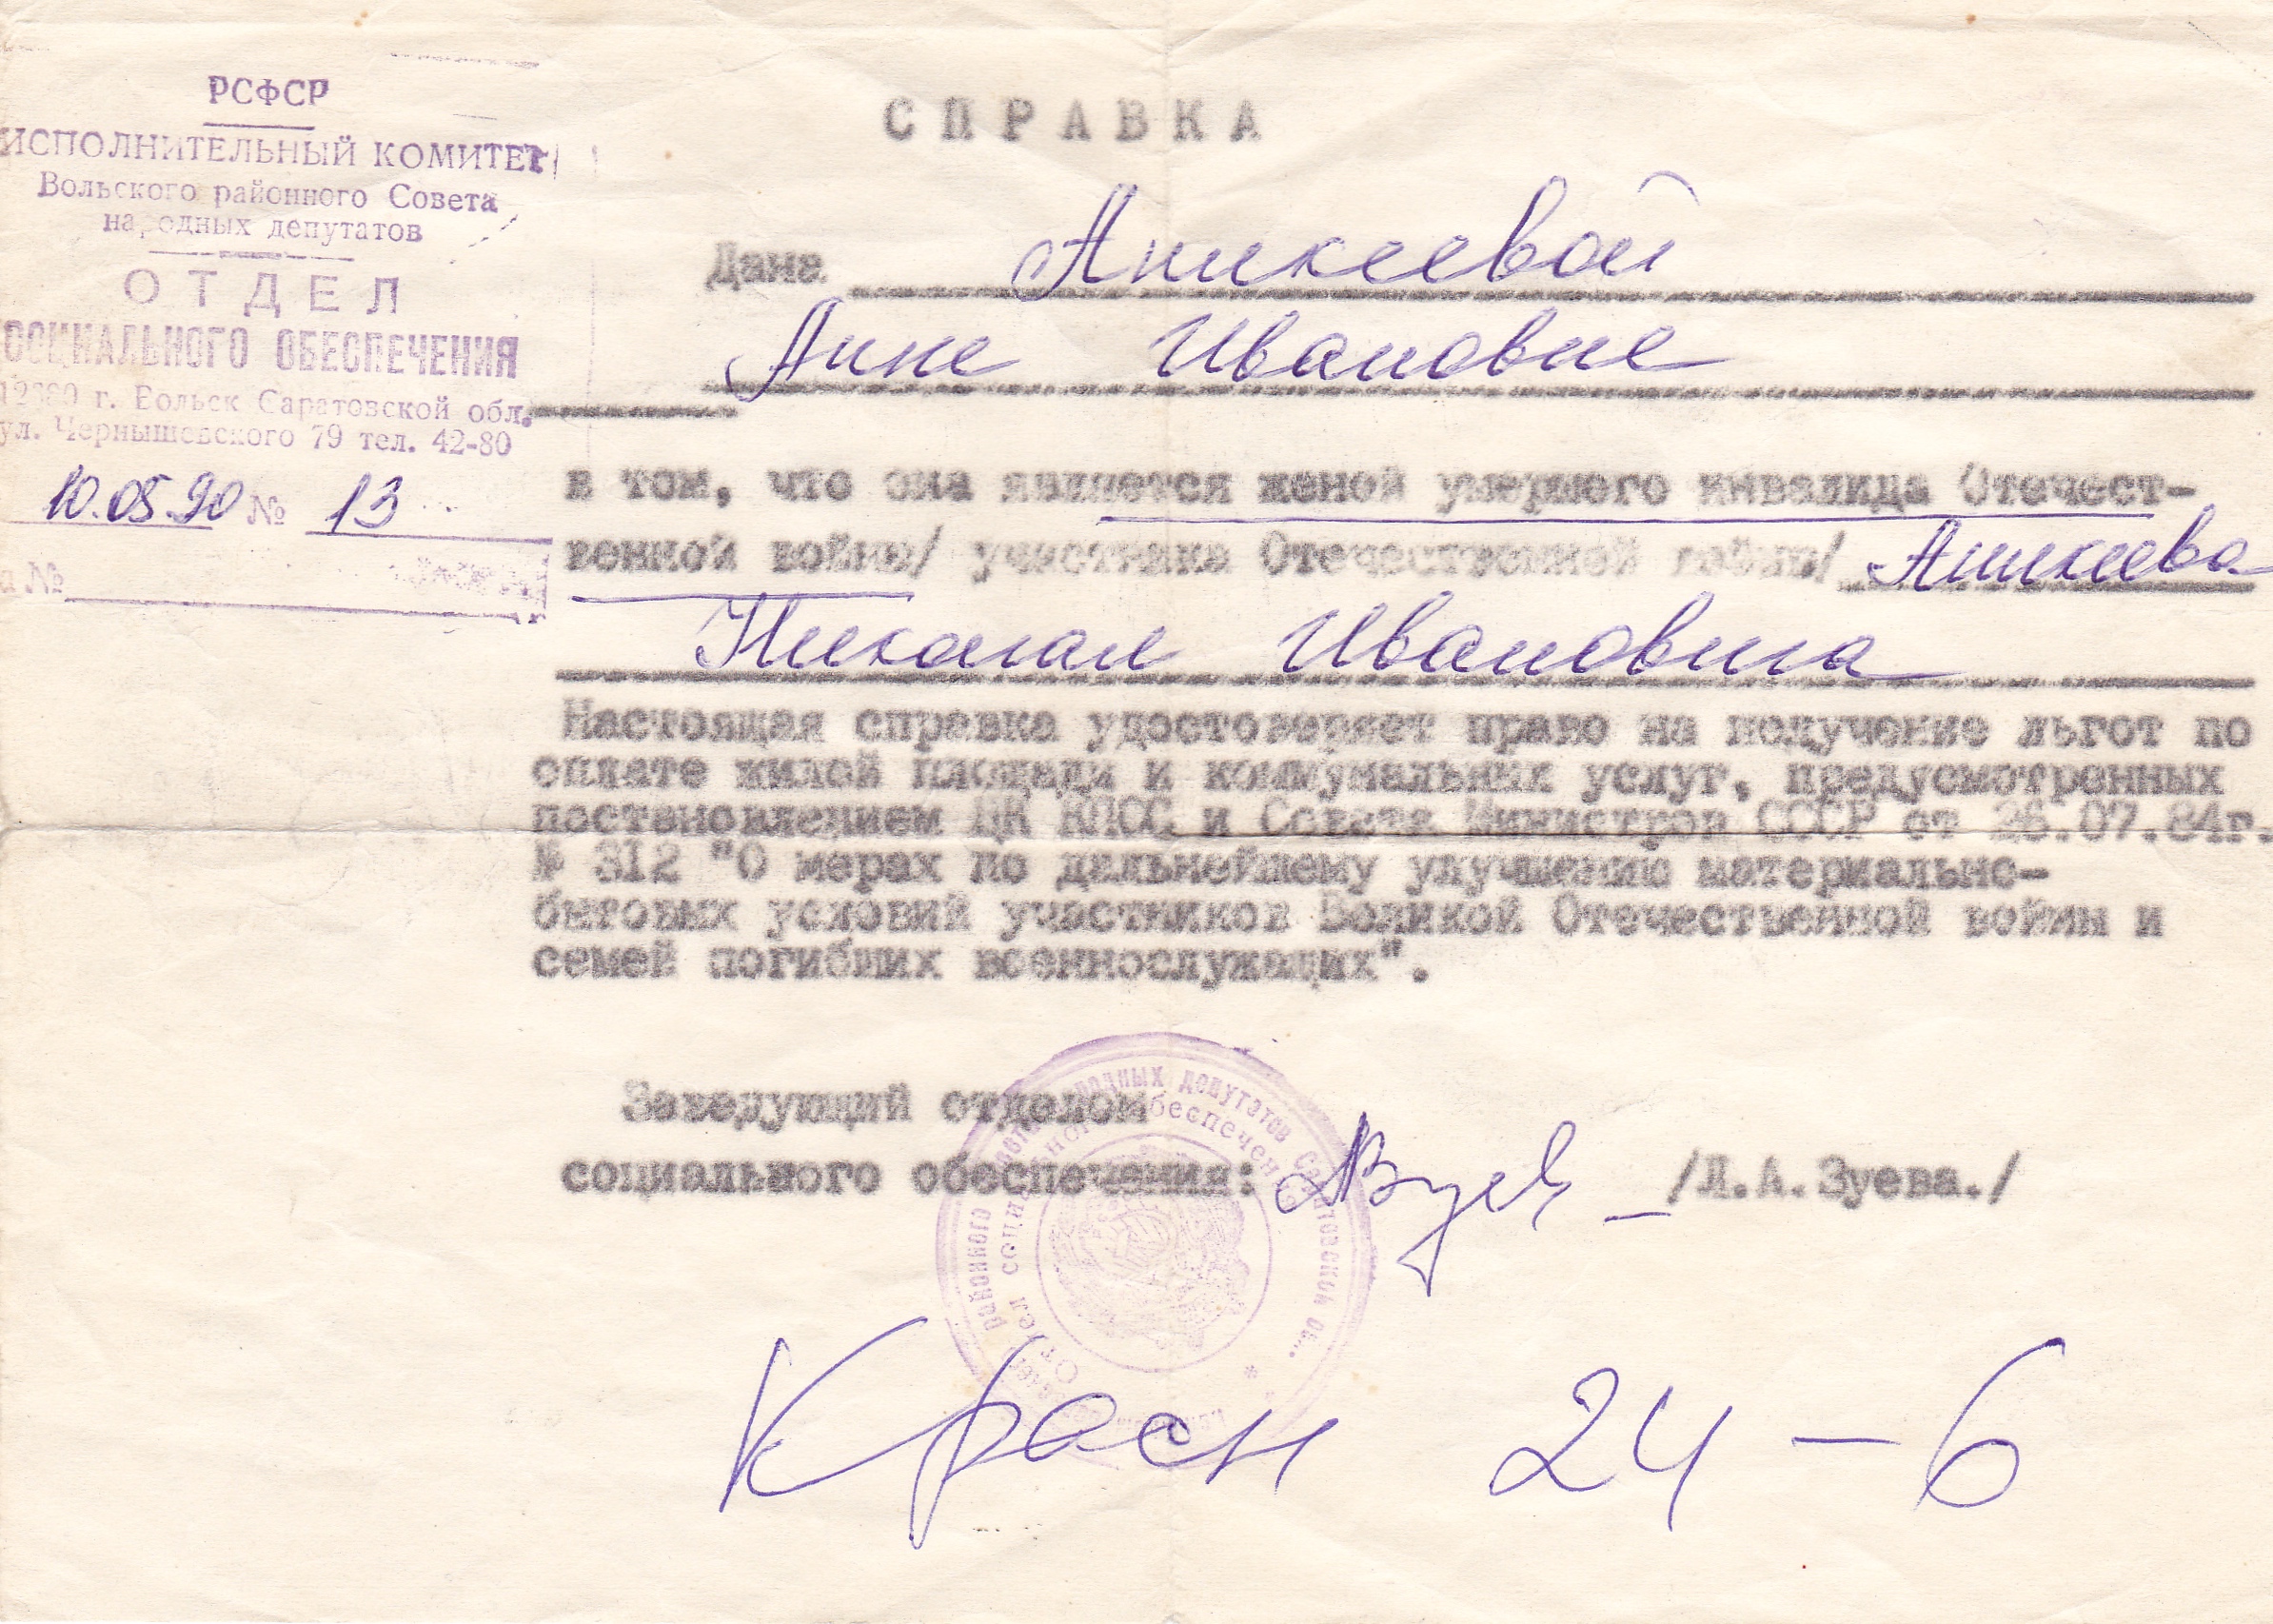 РСФСР
ИСПОЛНИТЕЛЬНЫЙ КОМИТЕТ
Вольского районного Совета
народных депутатов
ОТДЕЛ
СОЦИАЛЬНОГО ОБЕСПЕЧЕНИЯ
г. Вольск Саратовской обл.
ул. Чернышевского 79 тел. 42-80
10.05.90 № 13
а №
СПРАВКА
Дана Аникеевой
Анне Ивановне
в том, что она является женой умершего инвалида Отечест-
венной войны/ участника Отечественной войны/ Аникеева
Николая Ивановича
Настоящая справка удостоверяет право на получение льгот по
оплате жилой площади и коммунальных услуг, предусмотренных
постановлением ЦК КПСС и Совета Министров СССР от 26.07.84г.
№ 312 "О мерах по дальнейшему улучшению материально-
бытовых условий участников Великой Отечественной войны и
семей погибших военнослужащих".
Заведующий отделом
социального обеспечения: /Л.А.Зуева./
народных депутатов Саратовской об
Отдел социального обеспечения
Красн 24-6